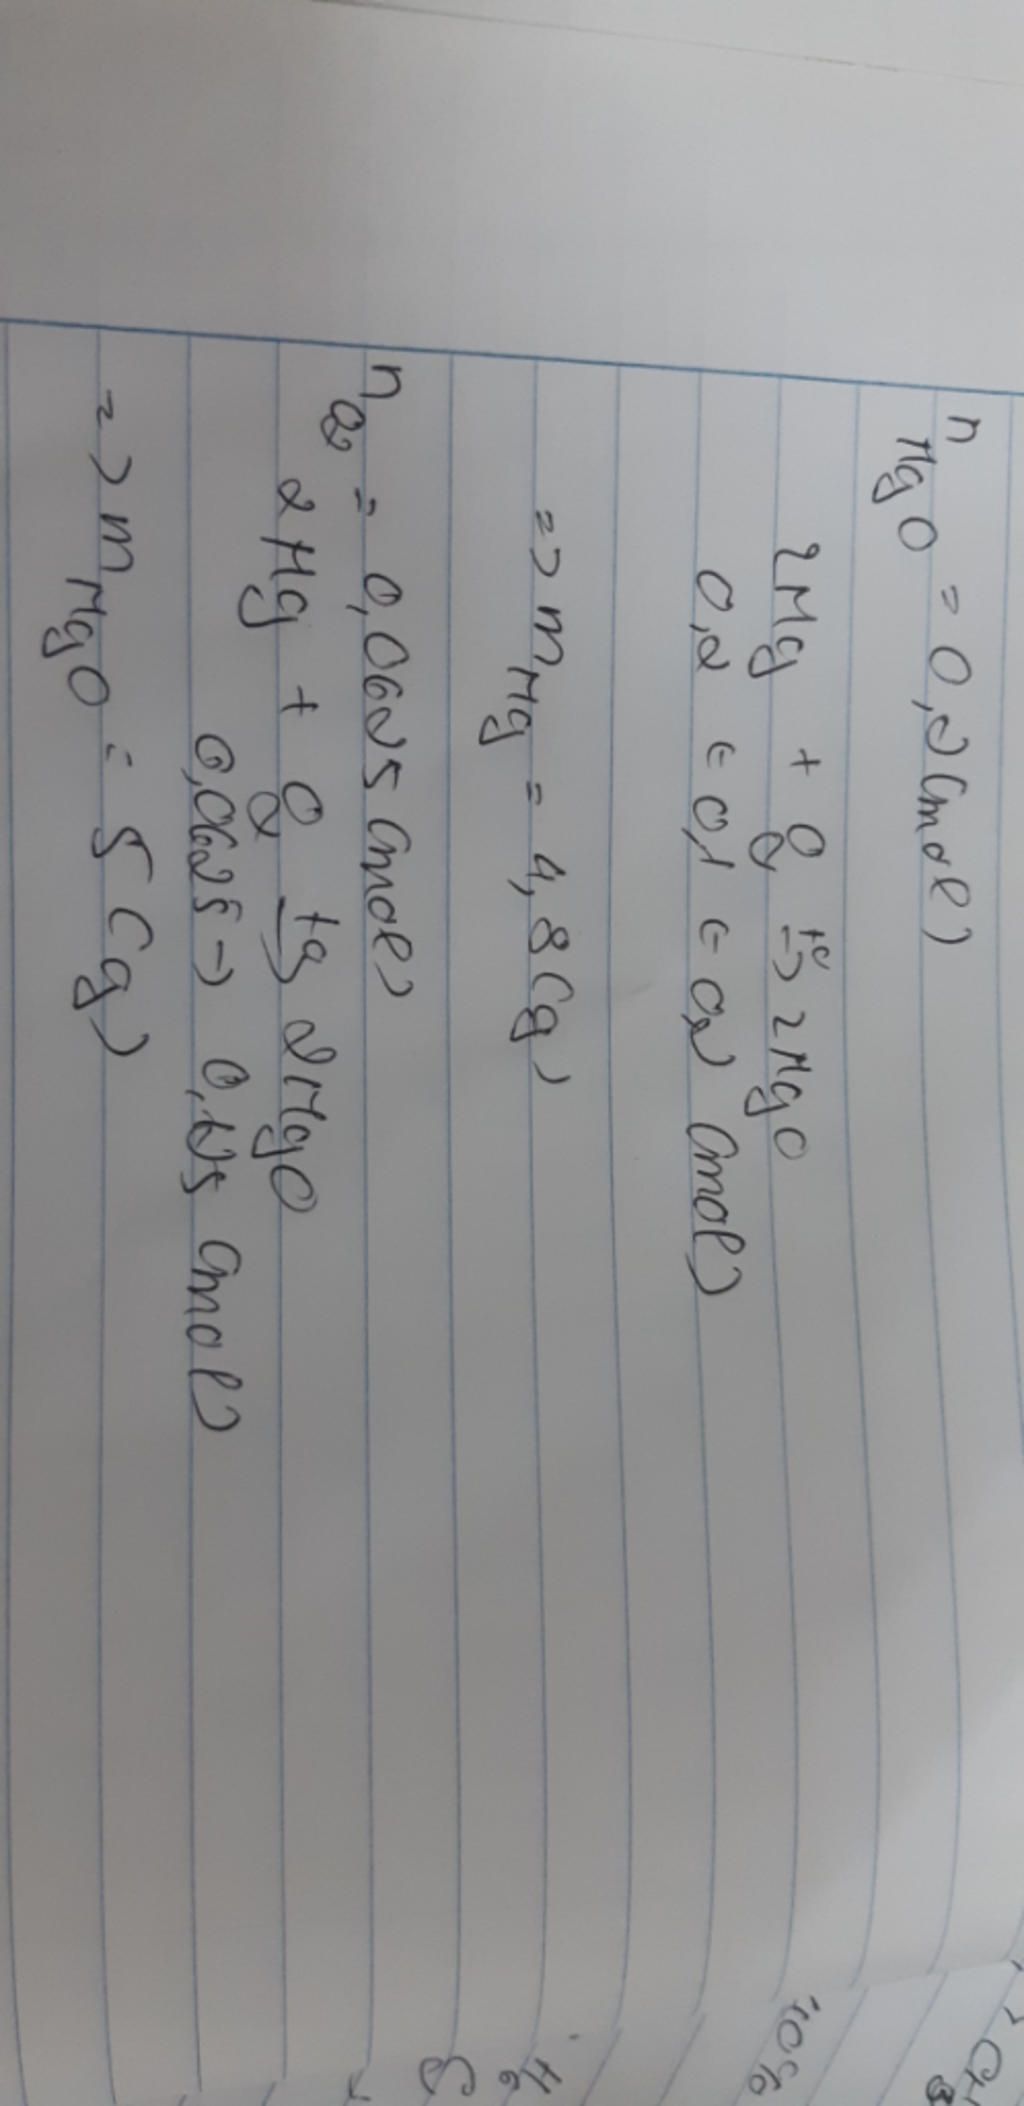 n MgO = 0,2 (mol)
2Mg + O2 t°→ 2MgO
0,2 ← 0,1 ← 0,2 (mol)
=> m Mg = 4,8 (g)
n O2 = 0,0625 (mol)
2Mg + O2 t°→ 2MgO
0,0625 → 0,125 (mol)
=> m MgO = 5 (g)
40%
H6